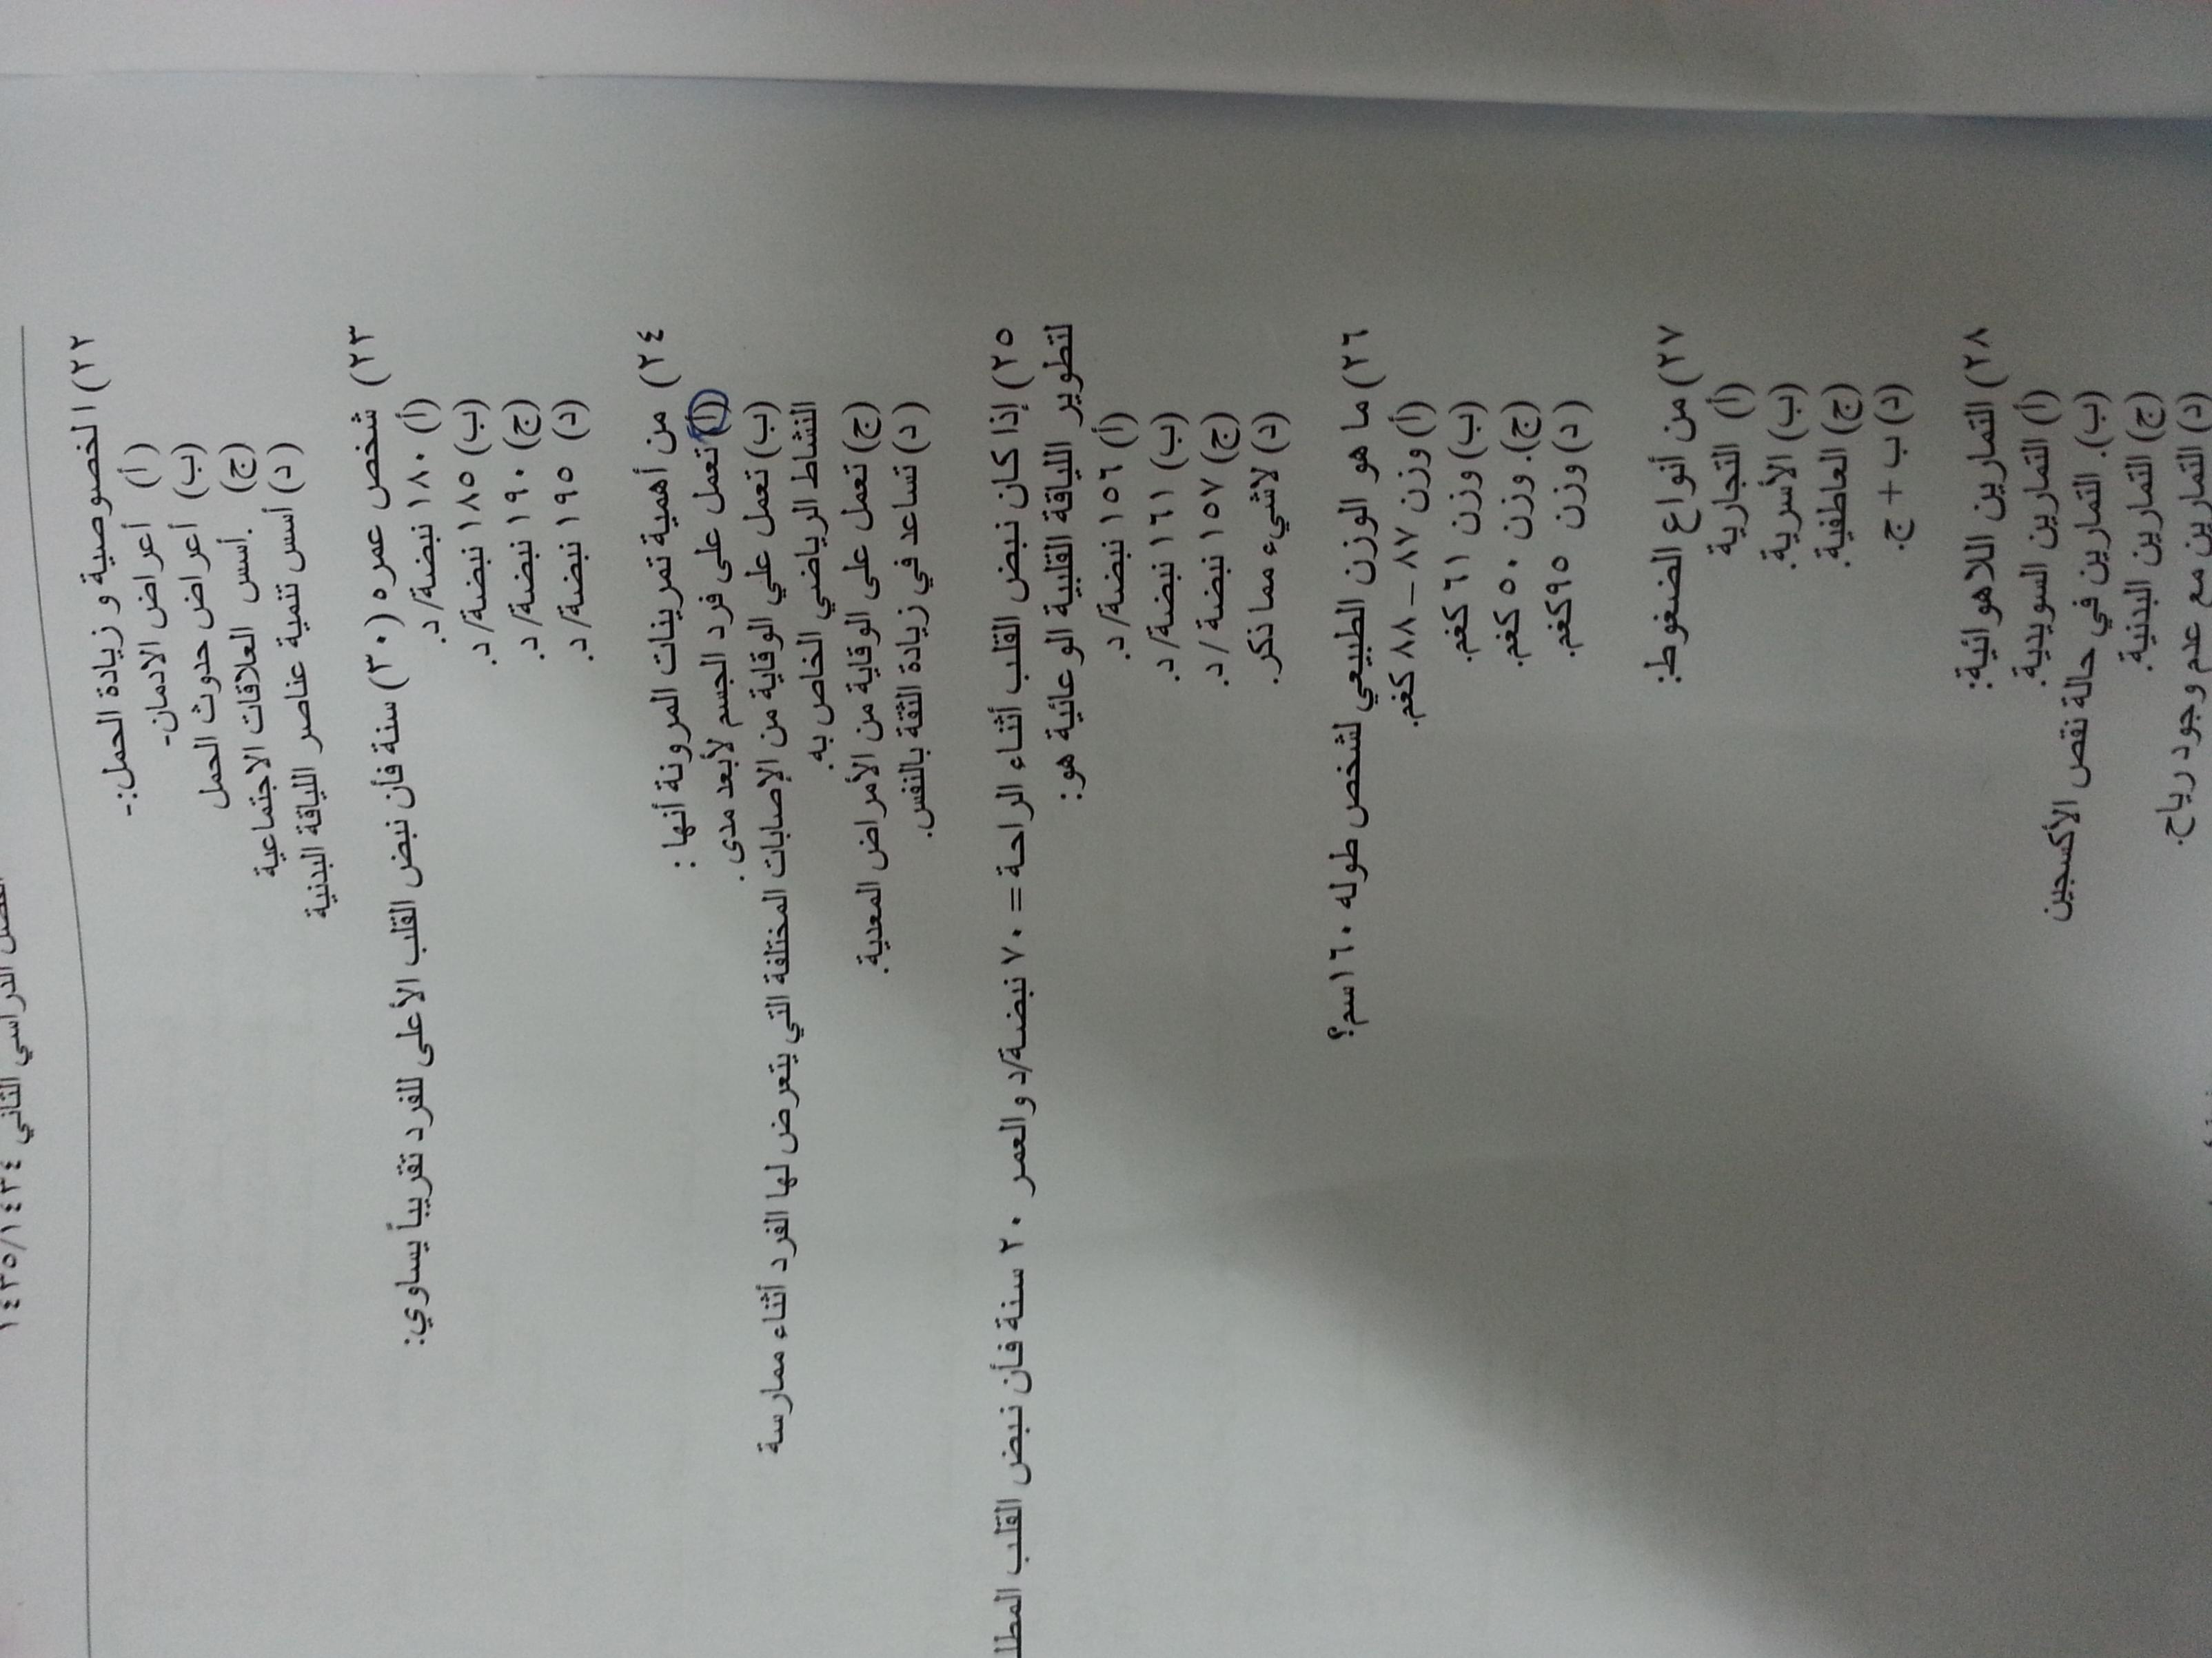 الفصل الدراسي الثاني ١٤٣٥/١٤٣٤
٢٢) الخصوصية و زيادة الحمل:-
أ) أعراض الادمان-
ب) أعراض حدوث الحمل
ج) .أسس العلاقات الاجتماعية
د) أسس تنمية عناصر اللياقة البدنية
٢٣) شخص عمره (٣٠) سنة فأن نبض القلب الأعلى للفرد تقريباً يساوي:
أ) ١٨٠ نبضة/د.
ب) ١٨٥ نبضة/د.
ج) ١٩٠ نبضة/د.
د) ١٩٥ نبضة/د.
٢٤) من أهمية تمرينات المرونة أنها :
أ) تعمل على فرد الجسم لأبعد مدى.
ب) تعمل علي الوقاية من الإصابات المختلفة التي يتعرض لها الفرد أثناء ممارسة
النشاط الرياضي الخاص به.
ج) تعمل على الوقاية من الأمراض المعدية.
د) تساعد في زيادة الثقة بالنفس.
٢٥) إذا كان نبض القلب أثناء الراحة = ٧٠ نبضة/د والعمر ٢٠ سنة فأن نبض القلب
لتطوير اللياقة القلبية الوعائية هو:
أ) ١٥٦ نبضة/د.
ب) ١٦١ نبضة/د.
ج) ١٥٧ نبضة /د.
د) لاشيء مما ذكر.
٢٦) ما هو الوزن الطبيعي لشخص طوله ١٦٠سم؟
أ) وزن ٨٧ – ٨٨ كغم.
ب) وزن ٦١ كغم.
ج). وزن ٥٠ كغم.
د) وزن ٩٥كغم.
٢٧) من أنواع الضغوط:
أ) التجارية
ب) الأسرية.
ج) العاطفية.
د) ب + ج.
٢٨) التمارين اللاهوائية:
أ) التمارين السويدية.
ب). التمارين في حالة نقص الأكسجين
ج) التمارين البدنية.
د) التمارين مع عدم وجود رياح.